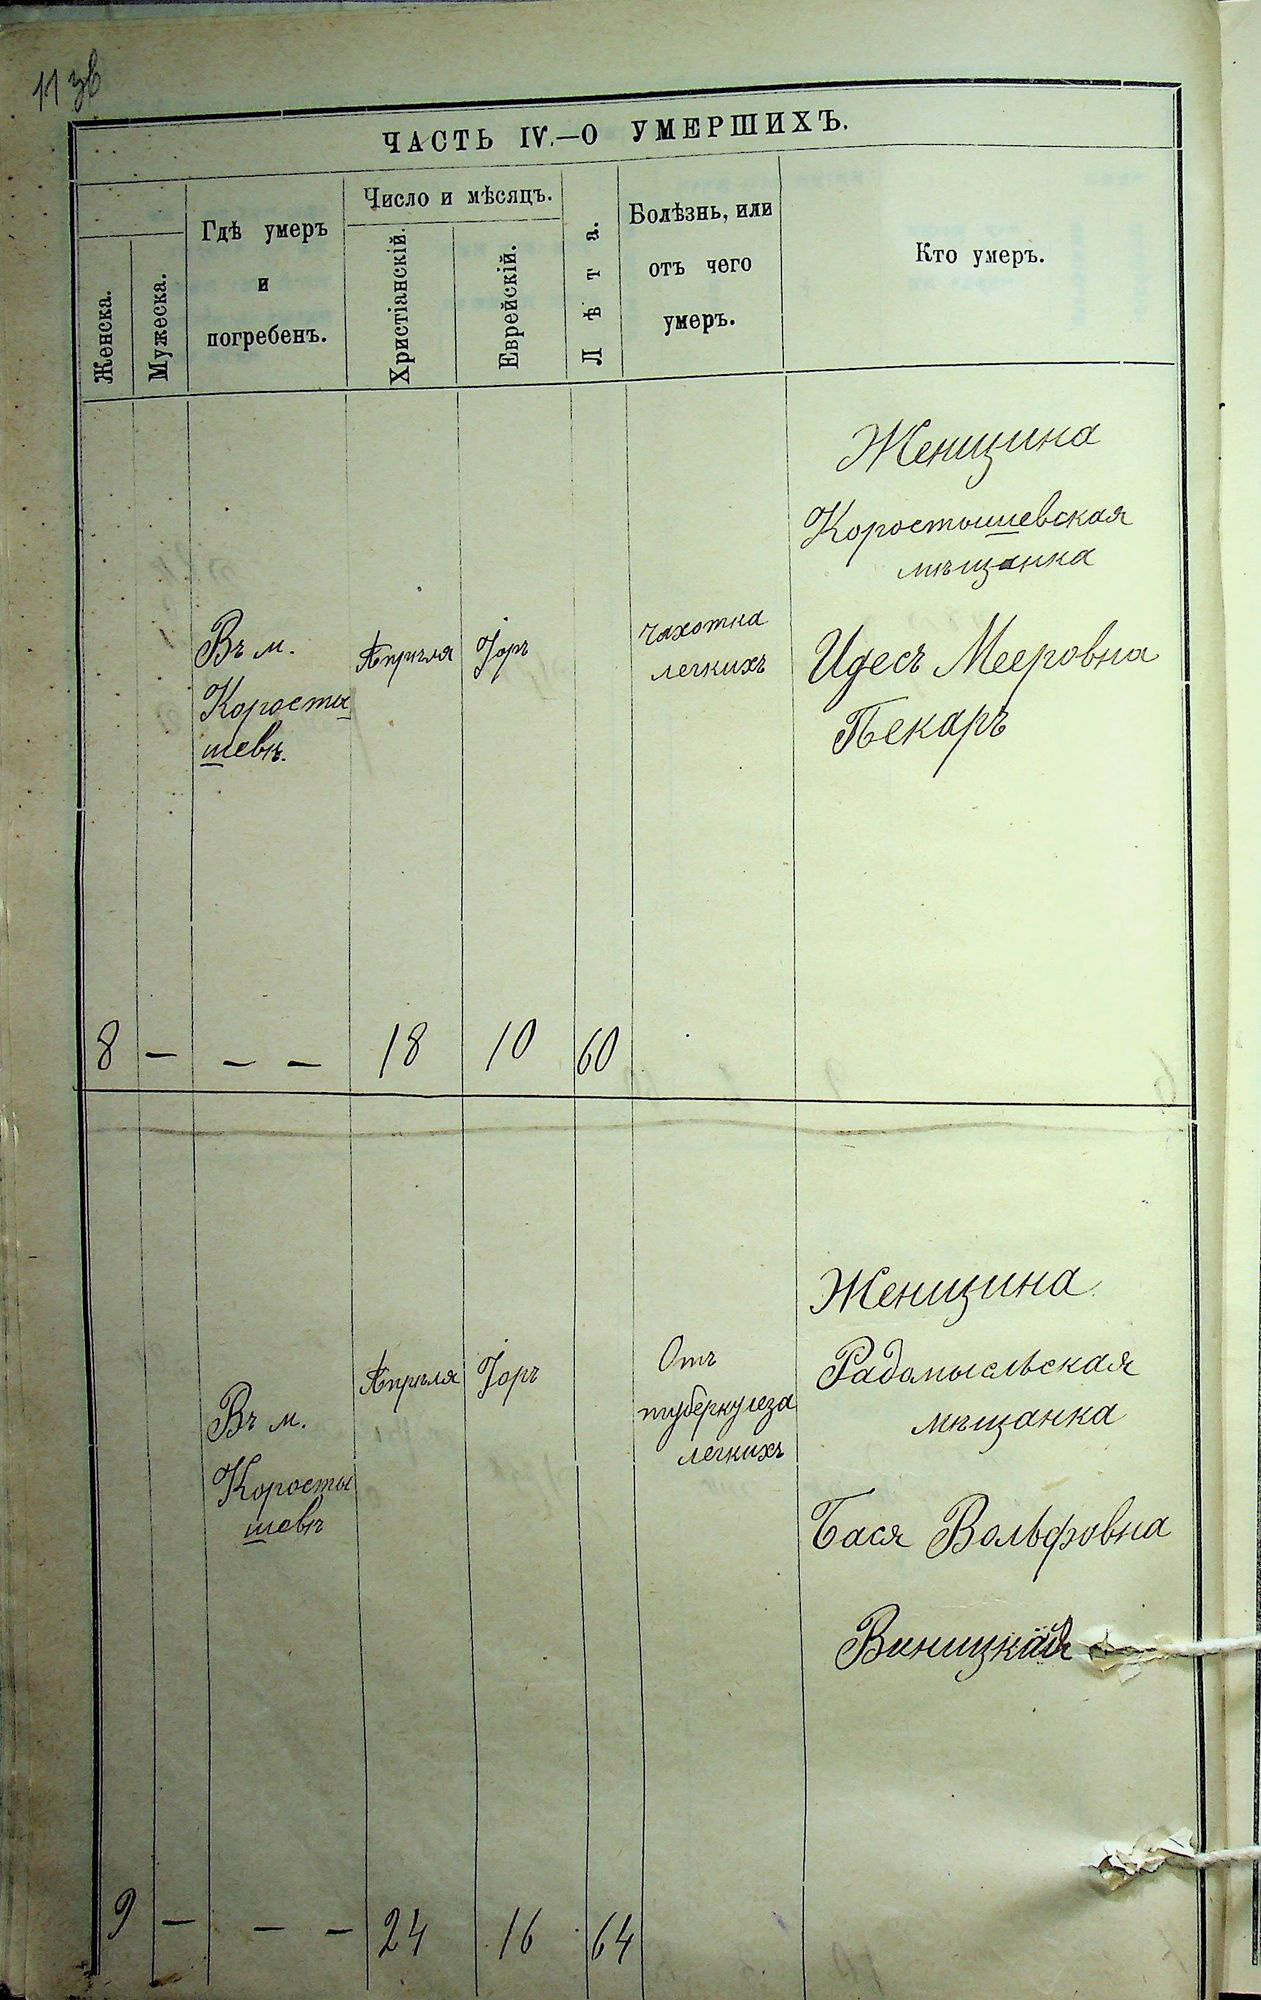 11 зв
ЧАСТЬ IV.—О УМЕРШИХЪ.
Женска.
Мужеска.
Гдѣ умеръ
и
погребенъ.
Число и мѣсяцъ.
Христіанскій.
Еврейскій.
Лѣта.
Болѣзнь, или
отъ чего
умеръ.
Кто умеръ.
Женщина
Коростышевская
мѣщанка
Въ м.
Коросты
шевѣ.
Апрѣля
Іоръ
чахотка
легкихъ
Идесъ Мееровна
Пекаръ
8 — — — 18 10 60
Женщина
Радомысльская
мѣщанка
Въ м.
Коросты
шевѣ
Апрѣля
Іоръ
Отъ
туберкулеза
легкихъ
Бася Вольфовна
Виницкая
9 — — — 24 16 64